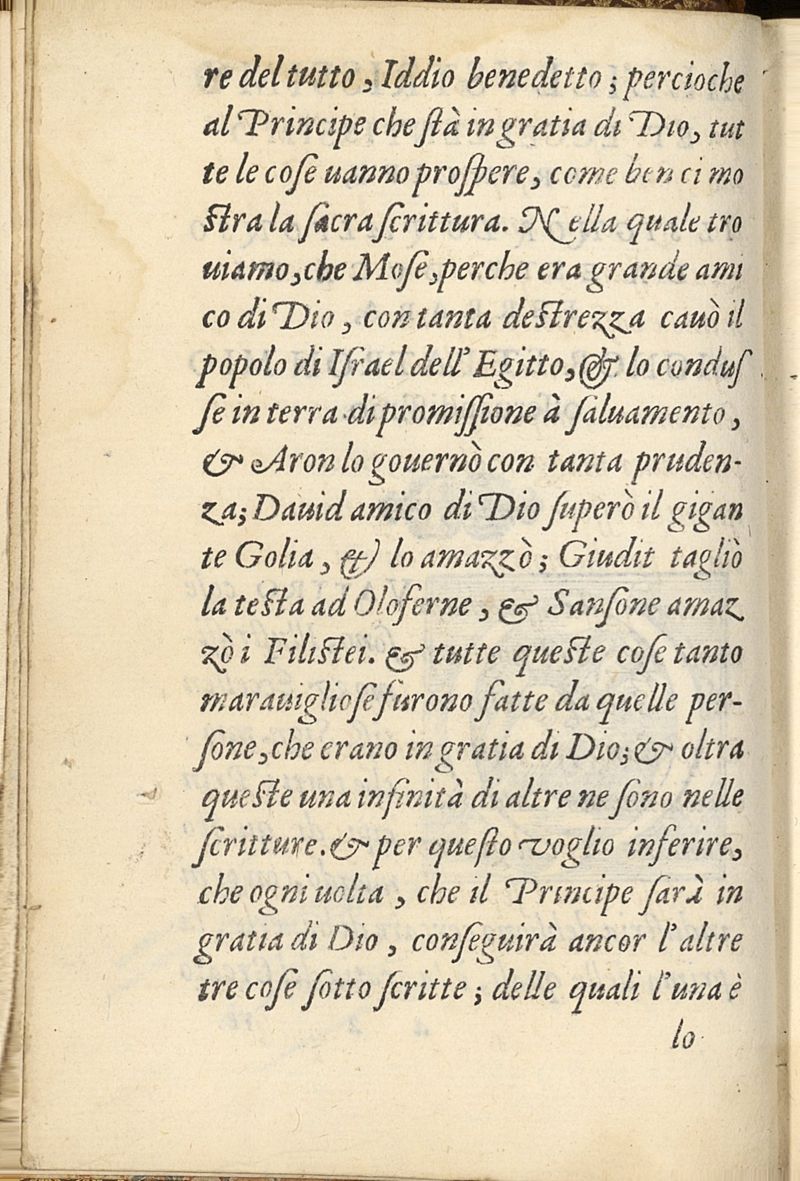 re del tutto, Iddio benedetto; percioche
al Principe che ſtà in gratia di Dio, tut
te le coſe uanno proſpere, come ben ci mo
ſtra la ſacra ſcrittura. Nella quale tro
uiamo, che Moſe, perche era grande ami
co di Dio, con tanta deſtrezza cauò il
popolo di Iſrael dell' Egitto, & lo conduſ
ſe in terra di promiſſione à ſaluamento,
& Aron lo gouernò con tanta pruden-
za; Dauid amico di Dio ſuperò il gigan
te Golia, & lo amazzò; Giudit tagliò
la teſta ad Oloferne, & Sanſone amaz
zò i Filiſtei. & tutte queſte coſe tanto
marauiglioſe furono fatte da quelle per-
ſone, che erano in gratia di Dio; & oltra
queſte una infinità di altre ne ſono nelle
ſcritture. & per queſto voglio inferire,
che ogni uolta, che il Principe ſarà in
gratia di Dio, conſeguirà ancor l'altre
tre coſe ſotto ſcritte; delle quali l'una è
lo